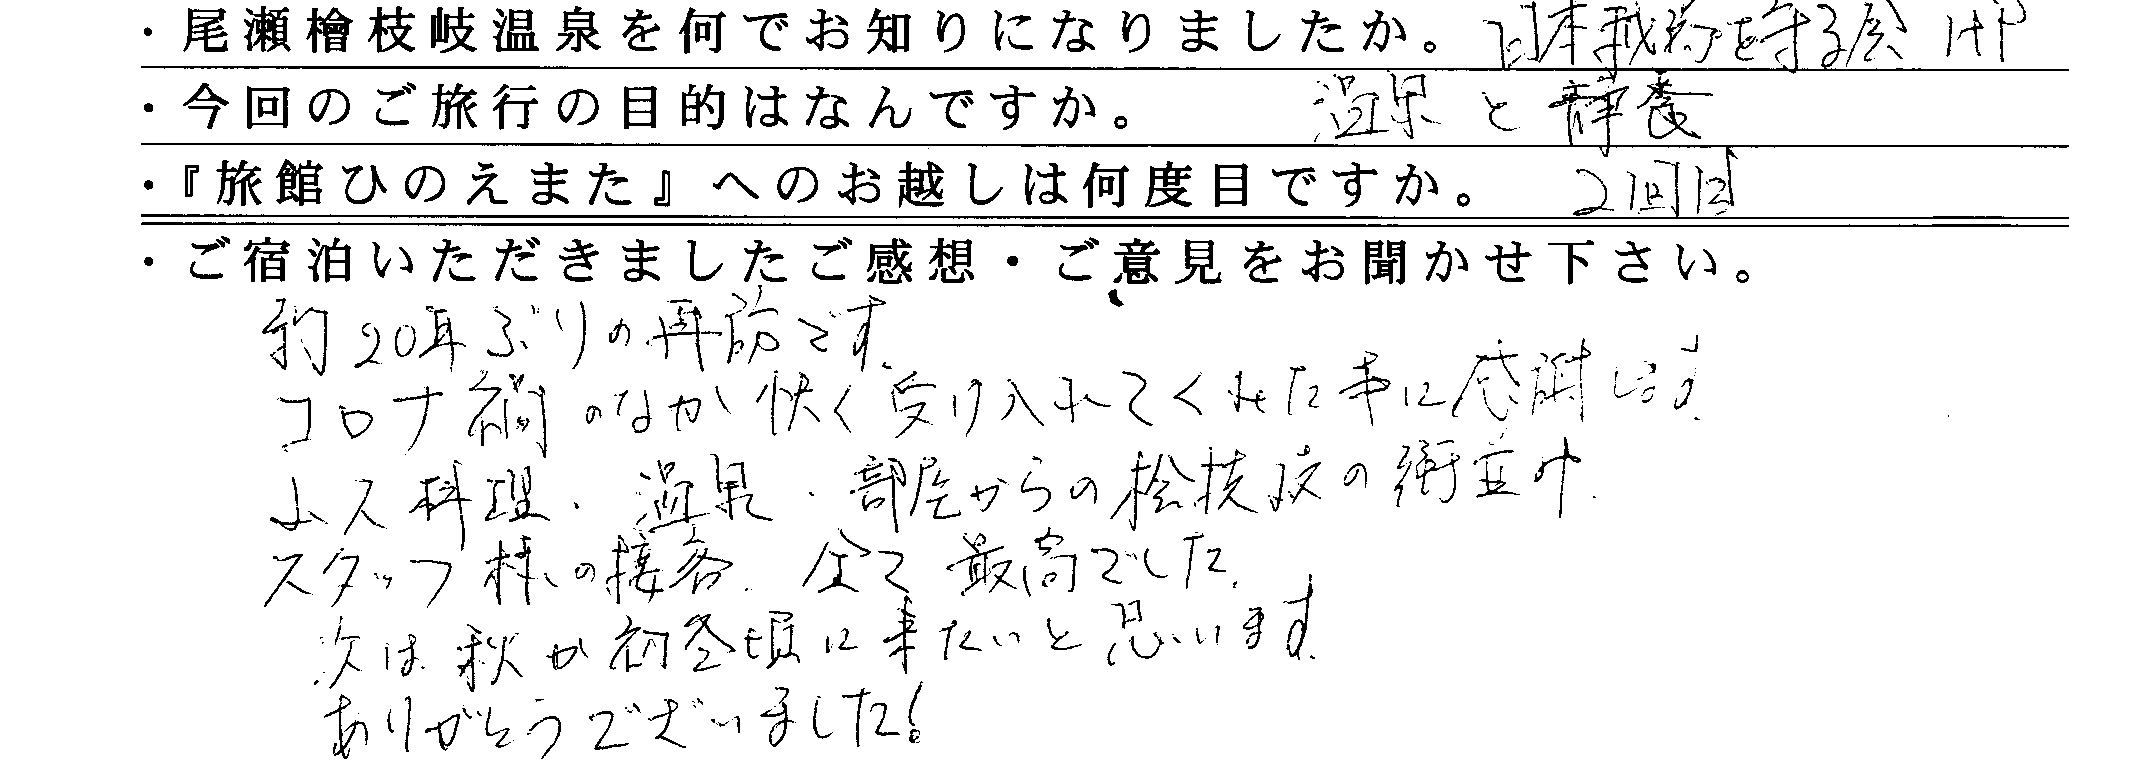 ・尾瀬檜枝岐温泉を何でお知りになりましたか。 日本秘湯を守る会 HP
・今回のご旅行の目的はなんですか。 温泉と静養
・『旅館ひのえまた』へのお越しは何度目ですか。 2回目
・ご宿泊いただきましたご感想・ご意見をお聞かせ下さい。
約20年ぶりの再訪です。
コロナ禍のなか快く受け入れてくれた事に感謝します。
山人料理、温泉、部屋からの桧枝岐の街並み、
スタッフ様の接客、全て最高でした。
次は秋か初冬頃に来たいと思います。
ありがとうございました!